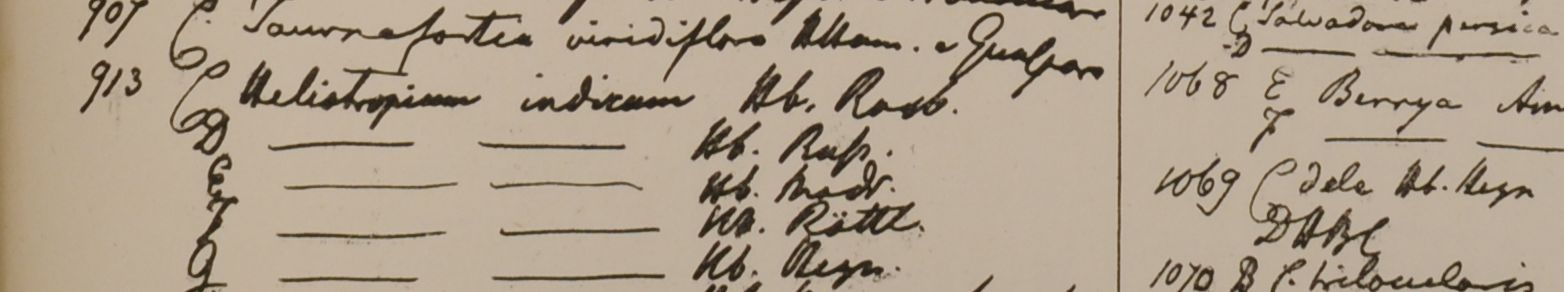 907 C. Tournefortia viridiflora HHam. e Gualpara
913 C Heliotropium indicum Hb. Roxb.
D ——— ——— Hb. Russ.
E ——— ——— Hb. Madr.
F ——— ——— Hb. Rottl.
G ——— ——— Hb. Heyn.
1042 C Salvadora persica
D ——— ———
1068 E Berrya Am
F ——— ———
1069 C dele Hb. Heyn
D HBC
1070 B C. trilocularis